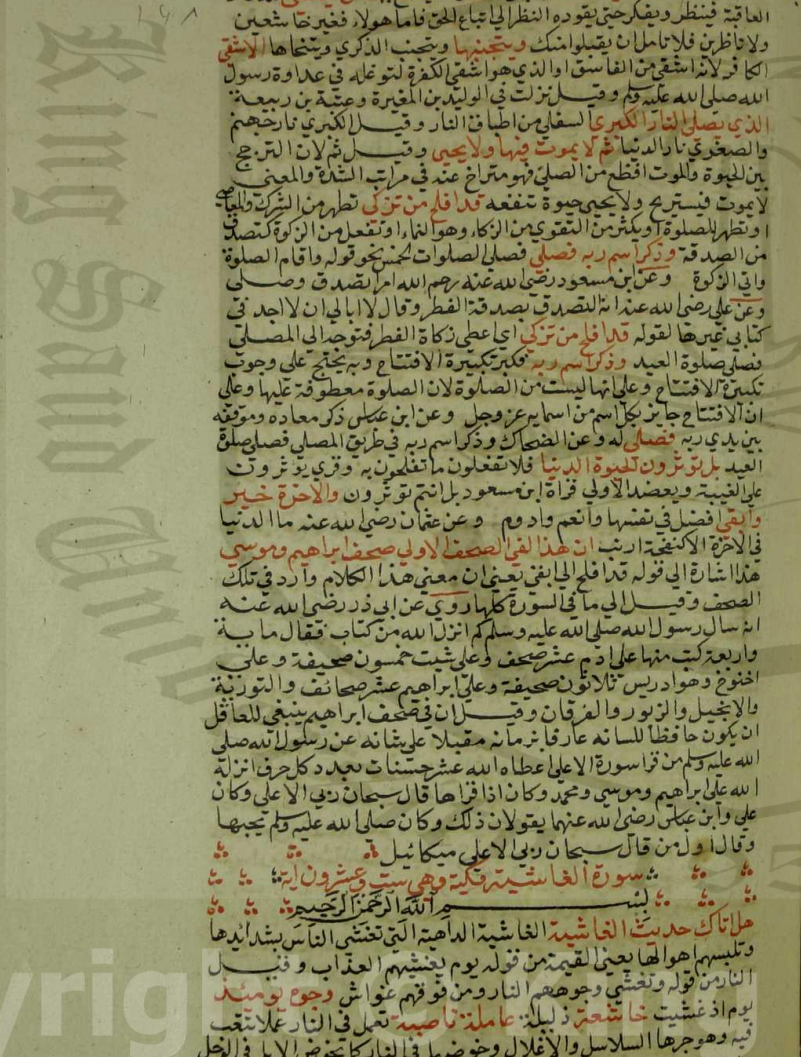 العاقبة فينظر ويفكر حتى يقوده النظر الى اتباع الحق فاما هؤلاء فغير خاشعين
ولا ناظرين فلا تأمل ان يقبلوا منك ويتجنبها ويتجنب الذكرى ويتحاماها الاشقى
الكافر لانه اشقى من الفاسق او الذي هو اشقى الكفرة لتوغله في عداوة رسول
الله صلى الله عليه وسلم وقيل نزلت في الوليد بن المغيرة وعتبة بن ربيعة
الذي يصلى النار الكبرى السفلى من اطباق النار وقيل الكبرى نار جهنم
والصغرى نار الدنيا ثم لا يموت فيها ولا يحيى وقيل ثم لان الترجح
بين الحيوة والموت افظع من الصلي فهو متراخ عنه في مراتب الشدة والمعنى
لا يموت فيستريح ولا يحيى حيوة تنفعه قد افلح من تزكى تطهر من الشرك والمعاصي
او تطهر للصلوة او تكثر من التقوى من الزكاء وهو النماء او تفعل من الزكوة كتصدق
من الصدقة وذكر اسم ربه فصلى فصلى الصلوات الخمس نحو قوله واقام الصلوة
واتى الزكوة وعن ابن مسعود رضى الله عنه رحم الله امرأ تصدق وصلى
وعن على رضى الله عنه انه التصدق بصدقة الفطر وقال لا ابالى ان لا اجد في
كتابى غيرها لقوله قد افلح من تزكى اى اعطى زكاة الفطر فتوجه الى المصلى
فصلى صلوة العيد وذكر اسم ربه فكبر تكبيرة الافتتاح وبه يحتج على وجوب
تكبيرة الافتتاح وعلى انها ليست من الصلوة لان الصلوة معطوفة عليها وعلى
ان الافتتاح جائز بكل اسم من اسمايه عز وجل وعن ابن عباس ذكر معاده وموقفه
بين يدي ربه فصلى له وعن الضحاك وذكر اسم ربه في طريق المصلى فصلى صلوة
العيد بل تؤثرون الحيوة الدنيا فلا تفعلون ما تفلحون به وقرى يؤثرون
على الغيبة ويعضد الاولى قراة ابن مسعود بل انتم تؤثرون والاخرة خير
وابقى افضل في نفسها وانعم وادوم وعن عمر رضى الله عنه ما الدنيا
في الاخرة الا كنفجة ارنب ان هذا لفى الصحف الاولى صحف ابراهيم وموسى
هذا اشارة الى قوله قد افلح الى ابقى يعنى ان معنى هذا الكلام وارد في تلك
الصحف وقيل الى ما في السورة كلها روى عن ابى ذر رضى الله عنه
انه سال رسول الله صلى الله عليه وسلم كم انزل الله من كتاب فقال ماية
واربعة كتب منها على ادم عشر صحف وعلى شيث خمسون صحيفة وعلى
اخنوخ وهو ادريس ثلاثون صحيفة وعلى ابراهيم عشر صحائف والتورية
والانجيل والزبور والفرقان وقيل ان في صحف ابراهيم ينبغى للعاقل
ان يكون حافظا للسانه عارفا بزمانه مقبلا على شانه عن رسول الله صلى
الله عليه وسلم من قرا سورة الاعلى اعطاه الله عشر حسنات بعدد كل حرف انزله
الله على ابراهيم وموسى ومحمد وكان اذا قراها قال سبحان ربى الاعلى وكان
على وابن عباس رضى الله عنهما يقولان ذلك وكان صلى الله عليه وسلم يحبها
وقال اول من قال سبحان ربى الاعلى ميكائيل
سورة الغاشية مكية وهى ست وعشرون اية
بسم الله الرحمن الرحيم
هل اتاك حديث الغاشية الغاشية الداهية التى تغشى الناس بشدائدها
وتلبسهم اهوالها يعنى القيمة من قوله يوم يغشيهم العذاب وقيل
النار من قوله وتغشى وجوههم النار ومن فوقهم غواش وجوه يومئذ
يوم اذ غشيت خاشعة ذليلة عاملة ناصبة تعمل في النار عملا تتعب
فيه وهو جرها السلاسل والاغلال وخوضها في النار كما تخوض الابل في الوحل